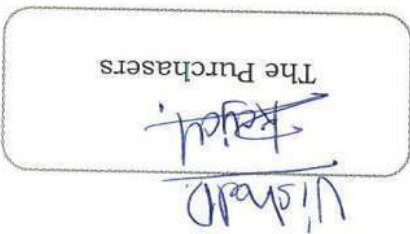 VishalD.
The Purchasers